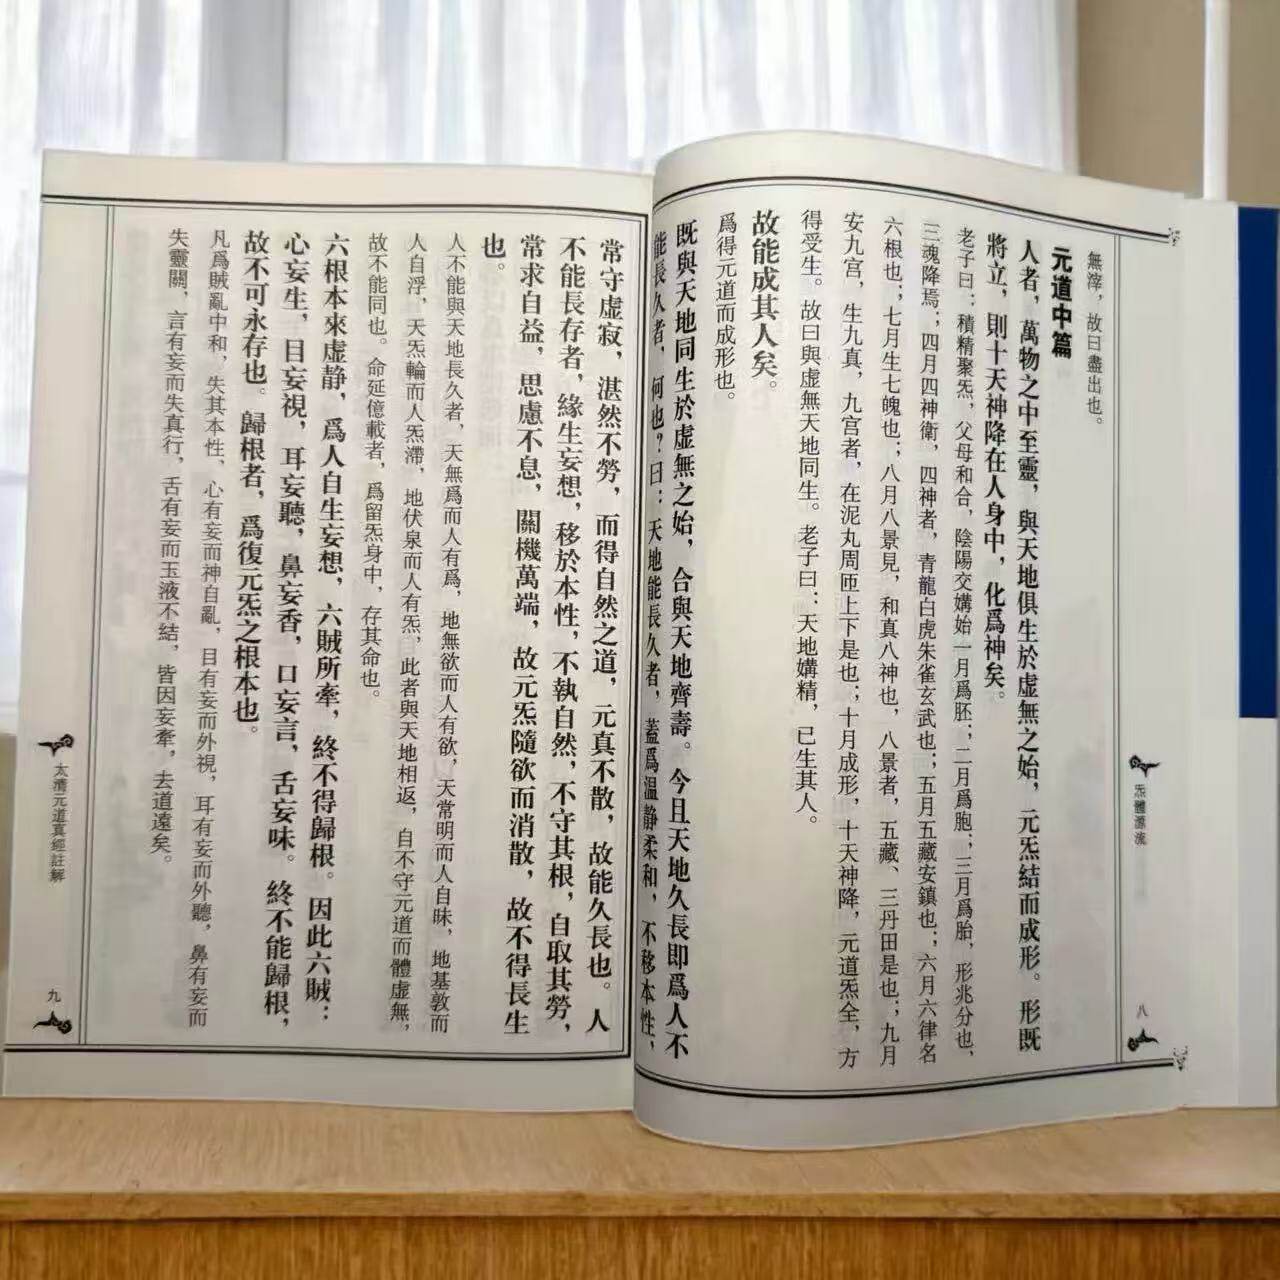 無滓，故曰盡出也。
元道中篇
人者，萬物之中至靈，與天地俱生於虛無之始，元炁結而成形。形既
將立，則十天神降在人身中，化爲神矣。
老子曰：積精聚炁，父母和合，陰陽交媾始一月爲胚；二月爲胞；三月爲胎，形兆分也，
三魂降焉；四月四神衛，四神者，青龍白虎朱雀玄武也；五月五藏安鎮也；六月六律名
六根也；七月生七魄也；八月八景見，和真八神也，八景者，五藏、三丹田是也；九月
安九宮，生九真，九宮者，在泥丸周匝上下是也；十月成形，十天神降，元道炁全，方
得受生。故曰與虛無天地同生。老子曰：天地媾精，已生其人。
故能成其人矣。
爲得元道而成形也。
既與天地同生於虛無之始，合與天地齊壽。今且天地久長即爲人不
能長久者，何也？曰：天地能長久者，蓋爲温静柔和，不移本性，
八
炁體源流
常守虛寂，湛然不勞，而得自然之道，元真不散，故能久長也。人
不能長存者，緣生妄想，移於本性，不執自然，不守其根，自取其勞，
常求自益，思慮不息，關機萬端，故元炁隨欲而消散，故不得長生
也。
人不能與天地長久者，天無爲而人有爲，地無欲而人有欲，天常明而人自昧，地基敦而
人自浮，天炁輪而人炁滯，地伏泉而人有炁，此者與天地相返，自不守元道而體虛無，
故不能同也。命延億載者，爲留炁身中，存其命也。
六根本來虛静，爲人自生妄想，六賊所牽，終不得歸根。因此六賊：
心妄生，目妄視，耳妄聽，鼻妄香，口妄言，舌妄味。終不能歸根，
故不可永存也。歸根者，爲復元炁之根本也。
凡爲賊亂中和，失其本性、心有妄而神自亂，目有妄而外視，耳有妄而外聽，鼻有妄而
失靈關，言有妄而失真行，舌有妄而玉液不結，皆因妄牽，去道遠矣。
太清元道真經註解
九